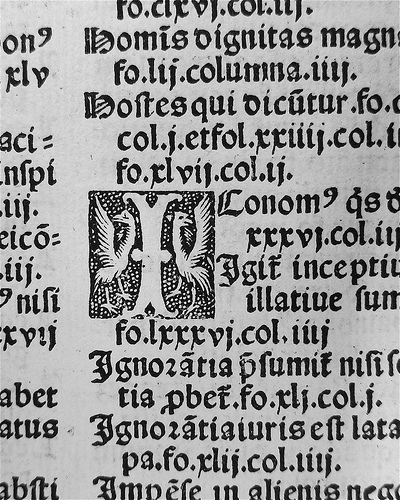 onꝰ
xlv
aci=
inſpi
.iij.
eicō=
.iij.
ꝰ niſi
xxvij
abet
atus
abſti
fo.clxvj.col.iij.
Homīs dignitas magn
fo.lij.columna.iiij.
Hoſtes qui dicūtur.fo.c
col.j.etfol.xxiiij.col.i
fo.xlvij.col.ij.
I
Conomꝰ q̄s d
xxxvj.col.iij
Igit̄ inceptiu
illatiue ſum
fo.lxxxvj.col.iiij
Ignorātia p̄ſumit̄ niſi ſc
tia ꝓbet̄.fo.xlj.col.j.
Ignorātia iuris eſt lata
pa.fo.xlij.col.iiij.
Impēſe in alienis nego